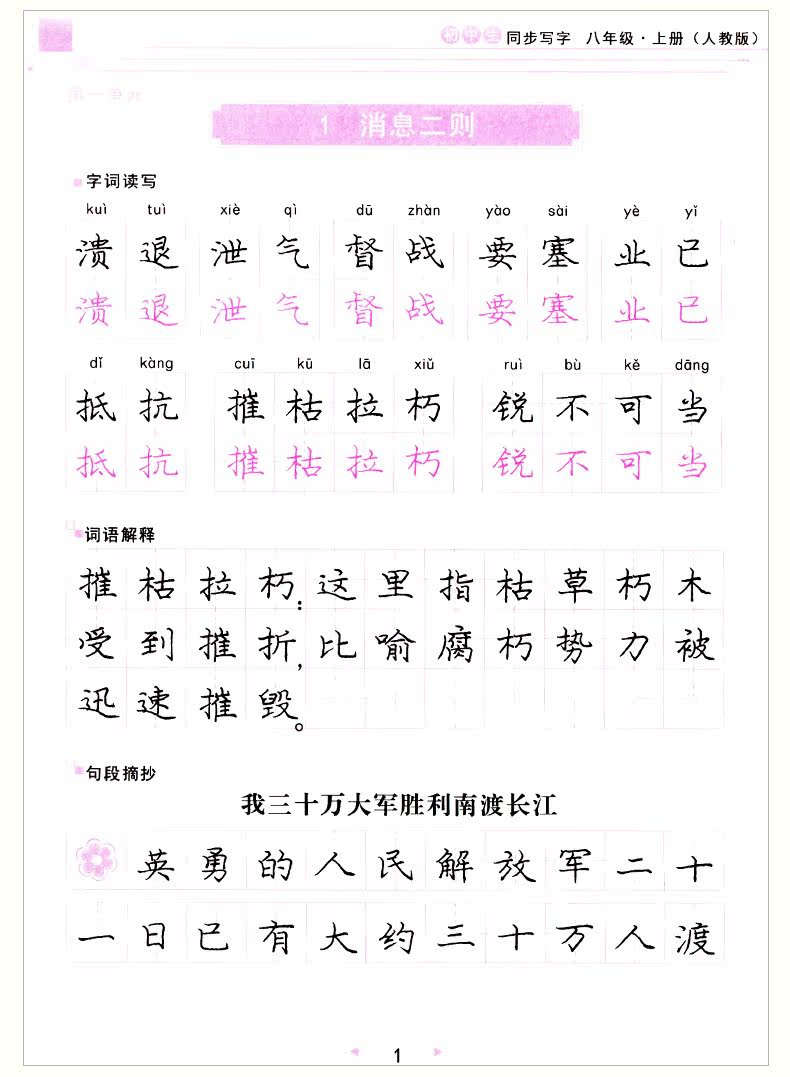 初中生 同步写字 八年级·上册（人教版）
第一单元
1 消息二则
字词读写
kuì tuì xiè qì dū zhàn yào sài yè yǐ
溃退 泄气 督战 要塞 业已
溃退 泄气 督战 要塞 业已
dǐ kàng cuī kū lā xiǔ ruì bù kě dāng
抵抗 摧枯拉朽 锐不可当
抵抗 摧枯拉朽 锐不可当
词语解释
摧枯拉朽：这里指枯草朽木
受到摧折，比喻腐朽势力被
迅速摧毁。
句段摘抄
我三十万大军胜利南渡长江
英勇的人民解放军二十
一日已有大约三十万人渡
1